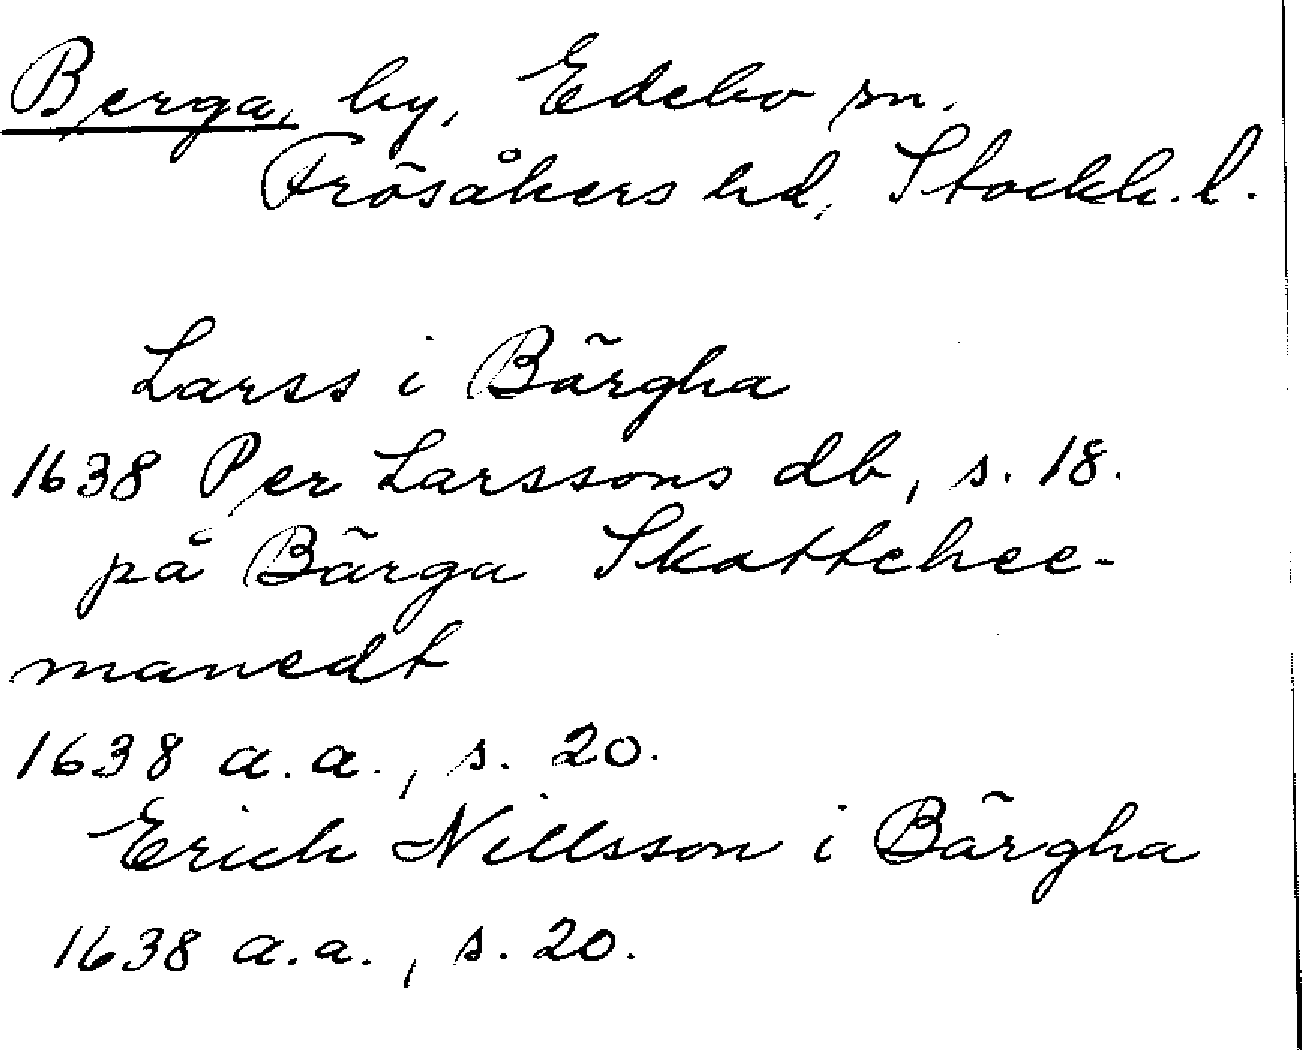 Berga, by, Edebo sn.
Frösåkers hd, Stockh. l.
Larss i Bärgha
1638 Per Larssons db, s. 18.
på Bärga Skattehee-
manedt
1638 a.a., s. 20.
Erich Nillsson i Bärgha
1638 a.a., s. 20.